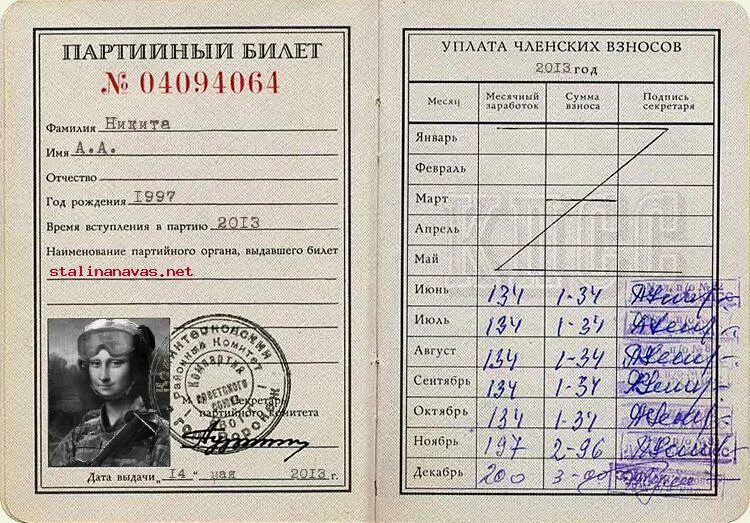 ПАРТИЙНЫЙ БИЛЕТ
№ 04094064
Фамилия Никита
Имя А.А.
Отчество
Год рождения 1997
Время вступления в партию 2013
Наименование партийного органа, выдавшего билет
stalinanavas.net
Районный Комитет
Компартия
Советского
Союза
М. Секретарь
партийного комитета
Дата выдачи „14" мая 2013 г.
УПЛАТА ЧЛЕНСКИХ ВЗНОСОВ
2013 год
Месяц Месячный заработок Сумма взноса Подпись секретаря
КПСС
Январь
Февраль
Март
Апрель
Май
Июнь 134 1-34
Июль 134 1-34
Август 134 1-34
Сентябрь 134 1-34
Октябрь 134 1-34
Ноябрь 197 2-96
Декабрь 200 3-00